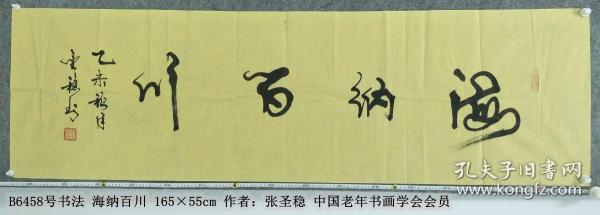 海纳百川
乙未秋月
圣稳书
孔夫子旧书网
www.kongfz.com
B6458号书法 海纳百川 165×55cm 作者：张圣稳 中国老年书画学会会员